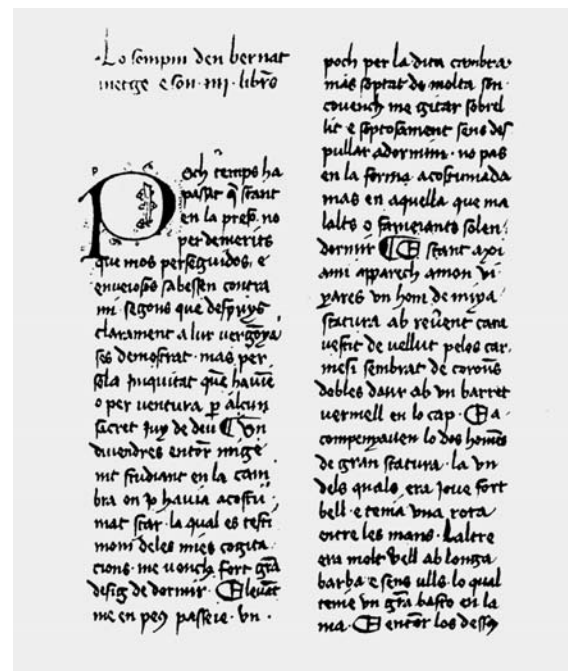 ·Lo sompni den bernat
metge e son ·iiij· libr̃s
Poch temps ha
passat q̃ stant
en la preso no
per demerits
que mos perseguidos, e
enveiosos sabessen contra
mi segons que despuys
clarament a lur vergõya
ses demostrat· mas per
sola iniquitat que havie
o per ventura ꝑ alcun
sacret iuy de deu ¶ Un
divendres entor mige
nit studiant en la cam
bra on io havia acostu
mat star· la qual es testi
moni deles mies cogita
cions· me vench fort grã
desig de dormir· ¶ E levat
me en peus passeie· un·
poch per la dita cambra·
mas soptat de molta son·
covench me gitar sobrel
lit e soptosament sens des
pullar adormim· no pas
en la forma acostumada
mas en aquella que ma
lalts o famejants solen·
dormir ¶ E stant axi
ami apparech amon vi
yares vn hom de miya
statura ab reverent cara
vestit de vellut pelos car
mesi sembrat de corones
dobles daur ab vn barret
vermell en lo cap· ¶ E a·
companyaven lo dos homẽs
de gran statura· la vn
dels quals, era jove fort
bell· e tenia vna rota
entre les mans· Laltre
era molt vell ab longa
barba e sens ulls· lo qual
tenie vn grã basto en la
ma· ¶ E entor los dessus